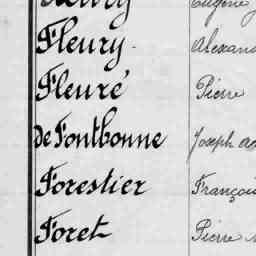 Fleury Eugène
Fleury Alexan
Fleuré Pierre
de Fontbonne Joseph
Forestier François
Foret Pierre